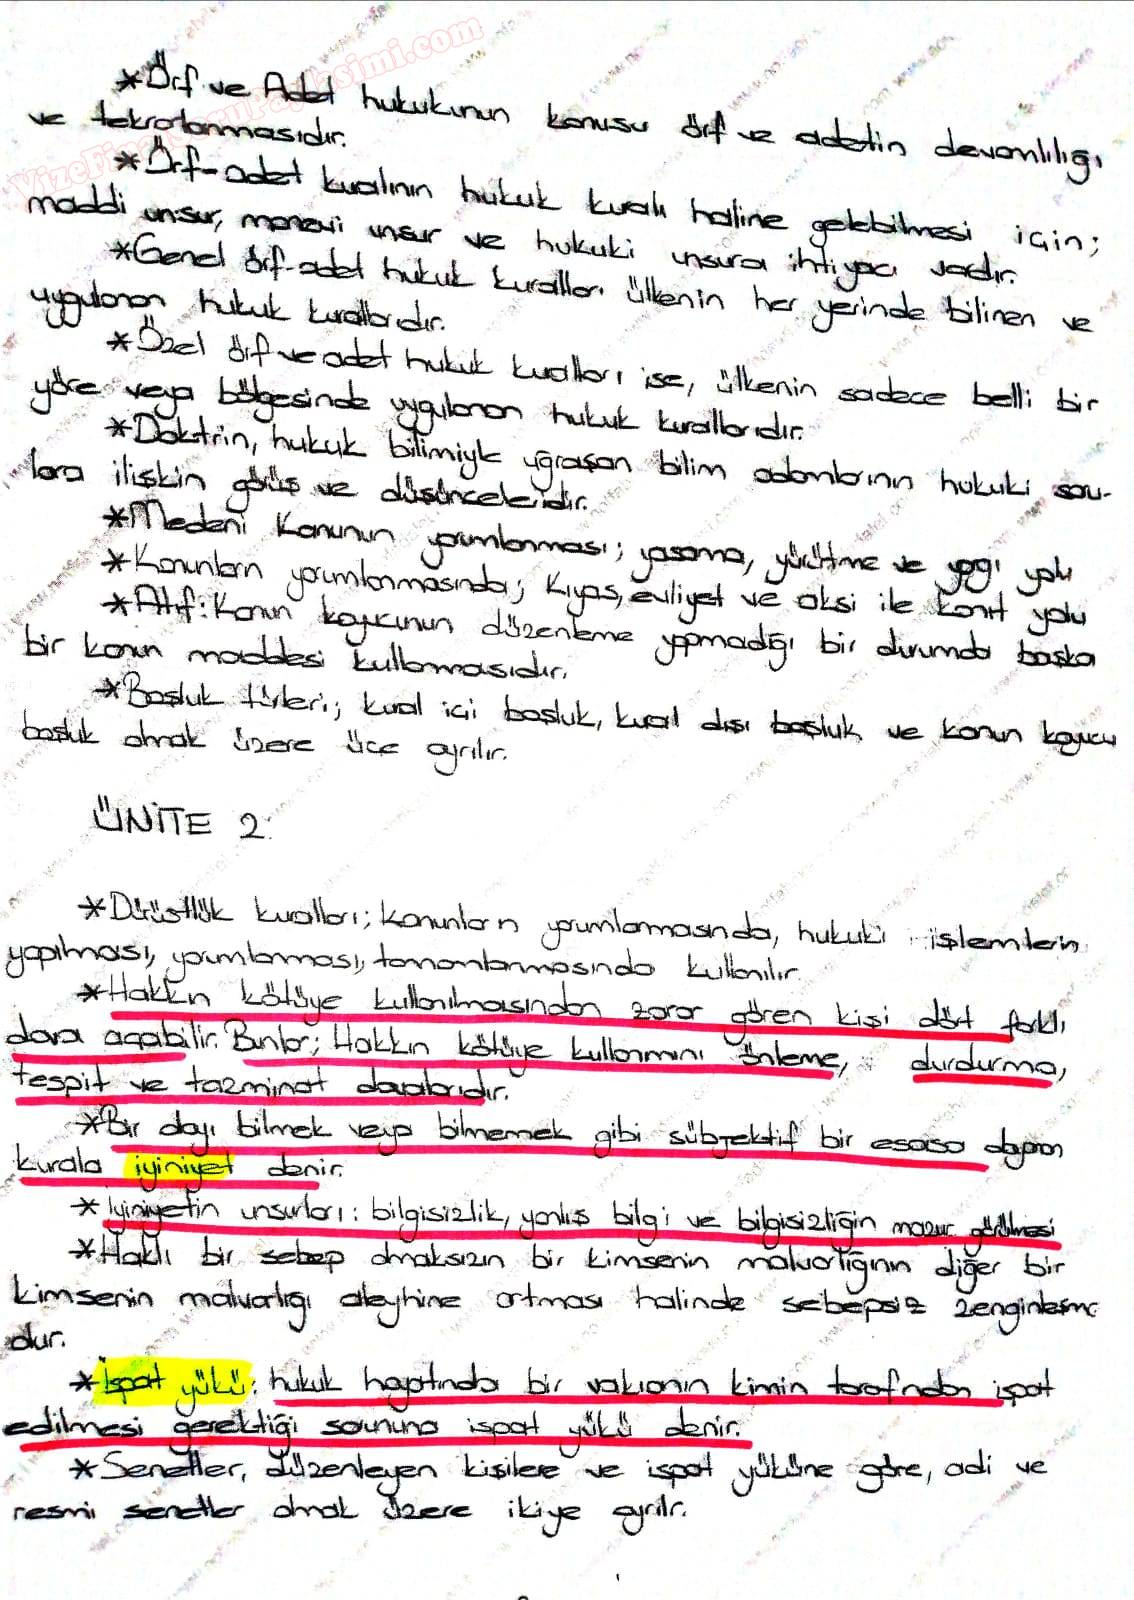 VizeFinalSoruPaylasimi.com
*Örf ve Adet hukukunun konusu örf ve adetin devamlılığı
ve tekrarlanmasıdır.
*Örf-adet kuralının hukuk kuralı haline gelebilmesi için;
maddi unsur, manevi unsur ve hukuki unsura ihtiyacı vardır.
*Genel örf-adet hukuk kuralları ülkenin her yerinde bilinen ve
uygulanan hukuk kurallarıdır.
*Özel örf ve adet hukuk kuralları ise, ülkenin sadece belli bir
yöre veya bölgesinde uygulanan hukuk kurallarıdır.
*Doktrin, hukuk bilimiyle uğraşan bilim adamlarının hukuki soru-
lara ilişkin görüş ve düşünceleridir.
*Medeni Kanunun yorumlanması; yasama, yürütme ve yargı yolu
*Kanunların yorumlanmasında; Kıyas, evliyet ve aksi ile kanıt yolu
*Atıf: Kanun koyucunun düzenleme yapmadığı bir durumda başka
bir kanun maddesi kullanmasıdır.
*Boşluk türleri; kural içi boşluk, kural dışı boşluk ve kanun koyucu
boşluk olmak üzere üçe ayrılır.
ÜNİTE 2:
*Dürüstlük kuralları; kanunların yorumlanmasında, hukuki işlemlerin
yapılması, yorumlanması, tamamlanmasında kullanılır.
*Hakkın kötüye kullanılmasından zarar gören kişi dört farklı
dava açabilir. Bunlar; Hakkın kötüye kullanımını önleme, durdurma,
tespit ve tazminat davalarıdır.
*Bir olayı bilmek veya bilmemek gibi sübjektif bir esasa dayanan
kurala iyiniyet denir.
*İyiniyetin unsurları: bilgisizlik, yanlış bilgi ve bilgisizliğin mazur görülmesi
*Haklı bir sebep olmaksızın bir kimsenin malvarlığının diğer bir
kimsenin malvarlığı aleyhine artması halinde sebepsiz zenginleşme
olur.
*İspat yükü: hukuk hayatında bir vakıanın kimin tarafından ispat
edilmesi gerektiği sorununa ispat yükü denir.
*Senetler, düzenleyen kişilere ve ispat yüküne göre, adi ve
resmi senetler olmak üzere ikiye ayrılır.